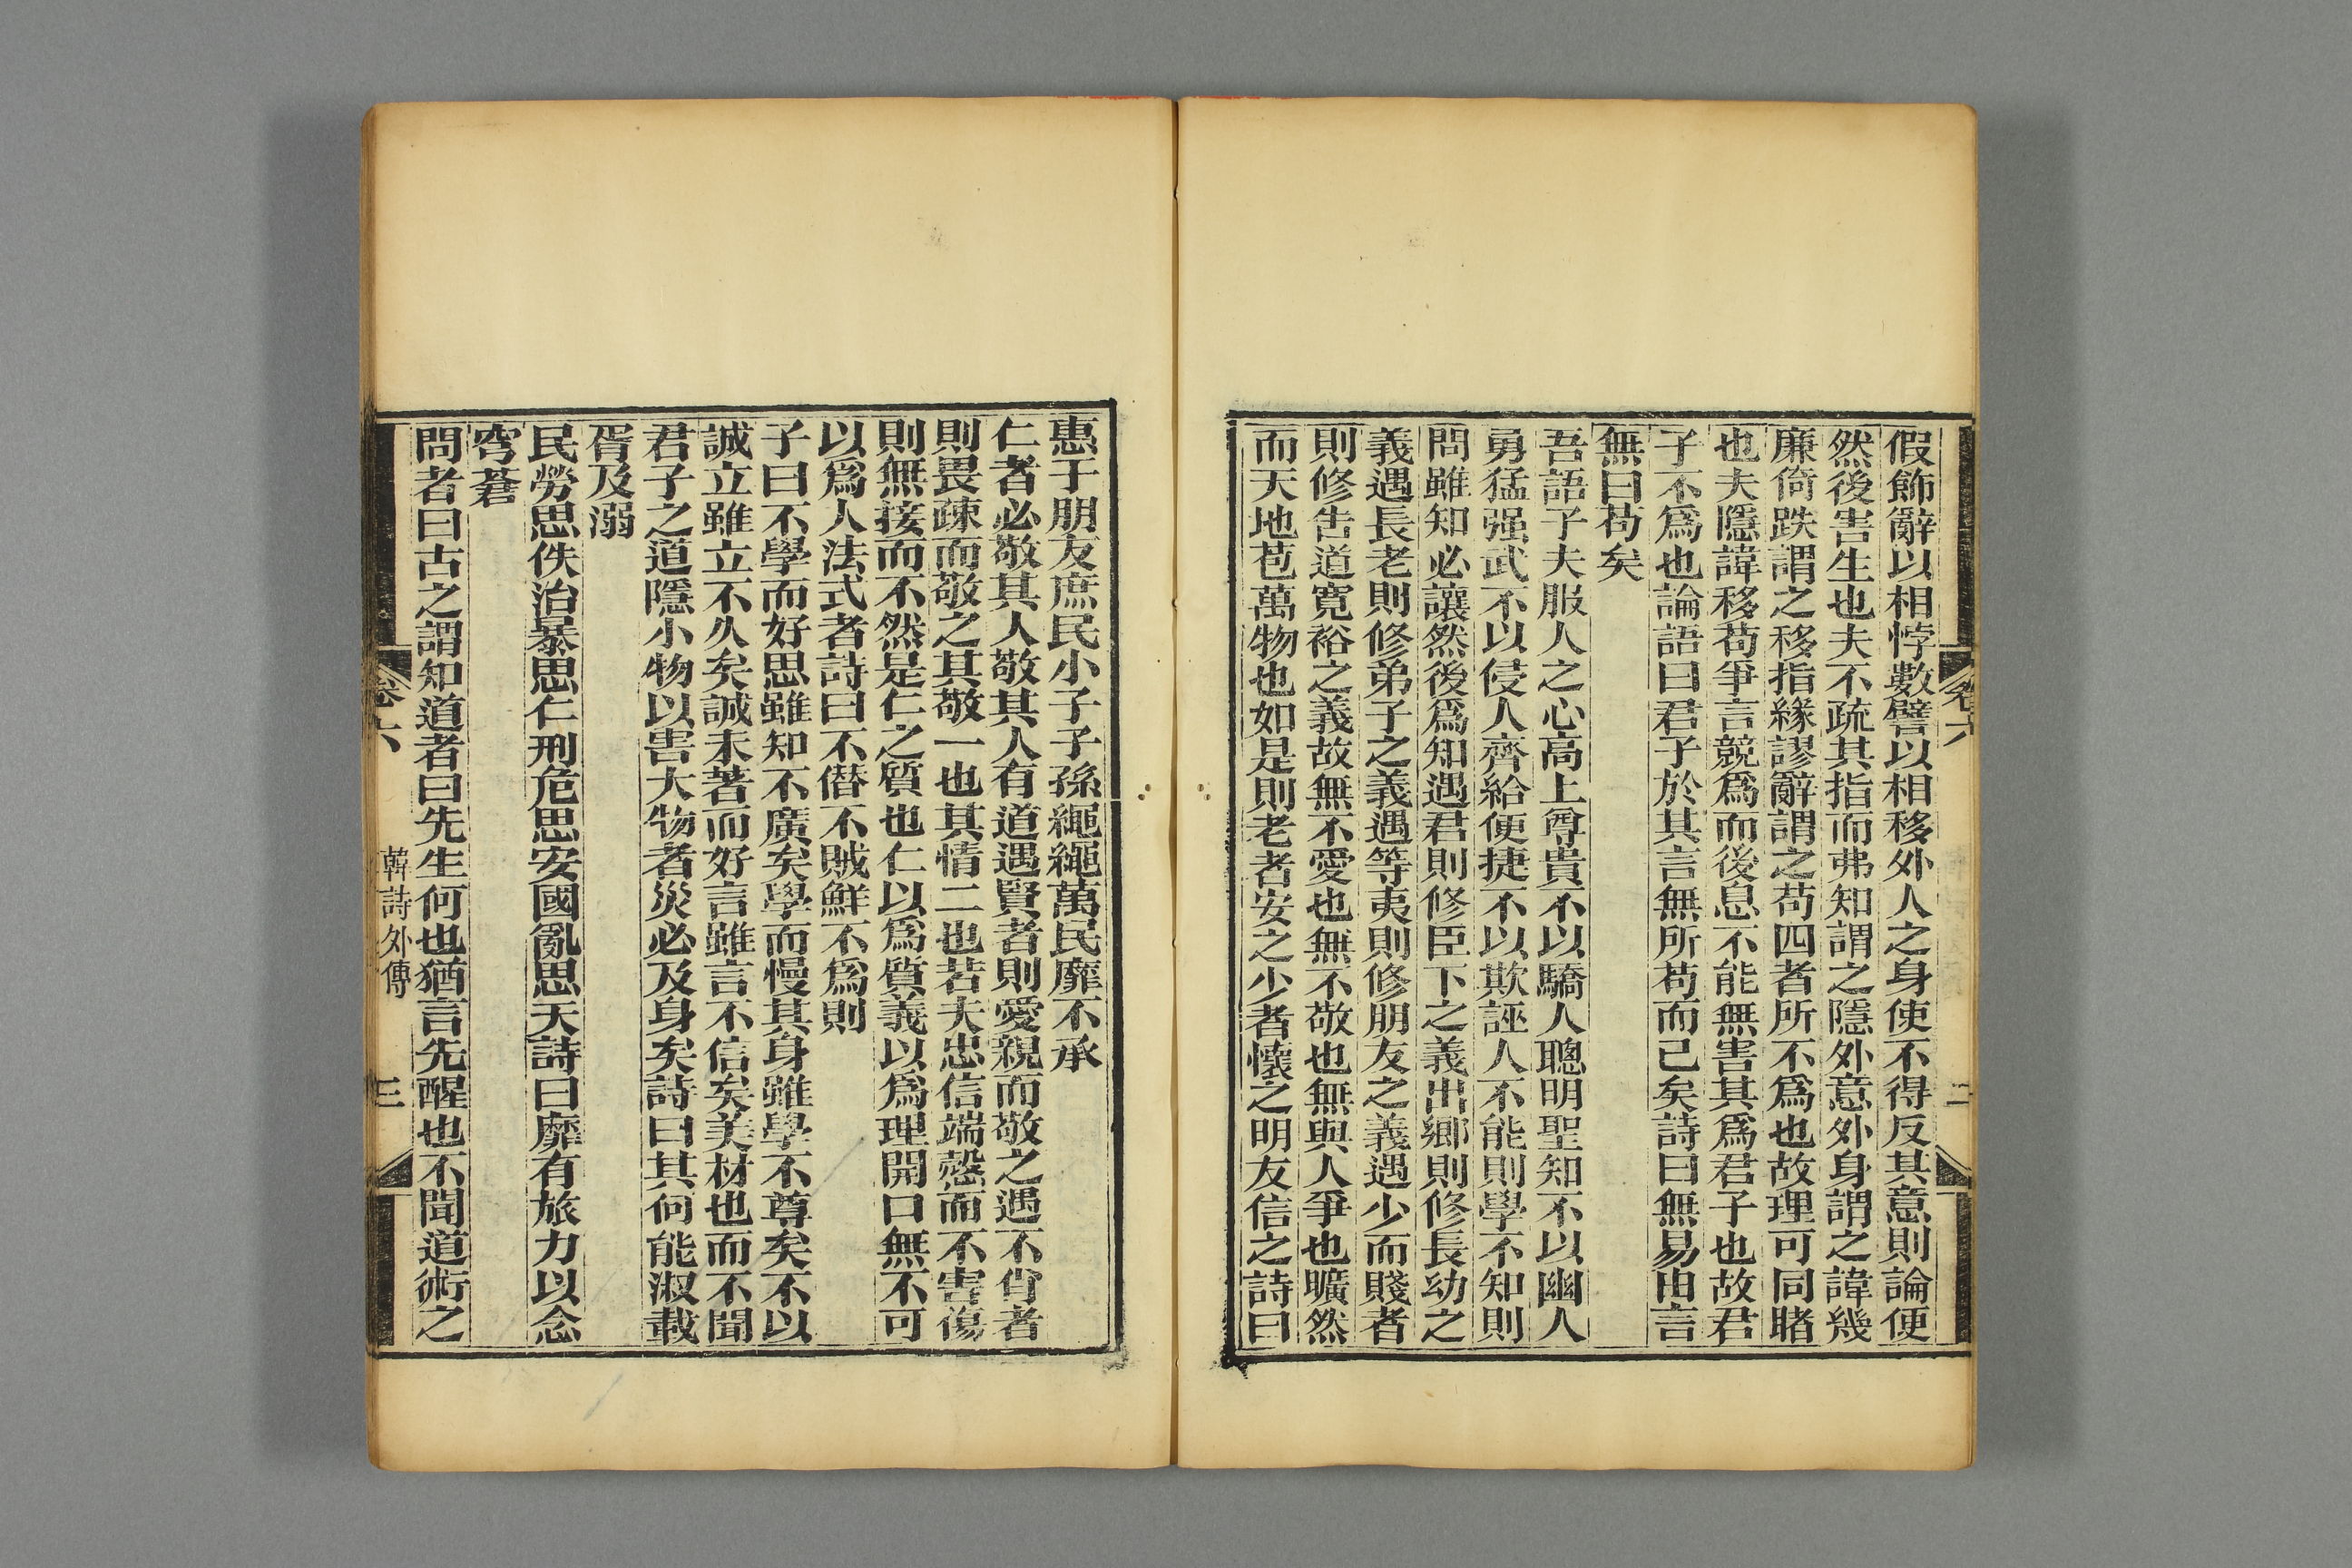 假飾辭以相悖數譬以相移外人之身使不得反其意則論便
然後害生也夫不疏其指而弗知謂之隱外意外身謂之諱幾
廉倚跌謂之移指緣謬辭謂之苟四者所不爲也故理可同睹
也夫隱諱移苟爭言競爲而後息不能無害其爲君子也故君
子不爲也論語曰君子於其言無所苟而已矣詩曰無易由言
無曰苟矣
吾語子夫服人之心高上尊貴不以驕人聰明聖知不以幽人
勇猛强武不以侵人齊給便捷不以欺誣人不能則學不知則
問雖知必讓然後爲知遇君則修臣下之義出鄉則修長幼之
義遇長老則修弟子之義遇等夷則修朋友之義遇少而賤者
則修告道寬裕之義故無不愛也無不敬也無與人爭也曠然
而天地苞萬物也如是則老者安之少者懷之明友信之詩曰
卷六
二
惠于朋友庶民小子子孫繩繩萬民靡不承
仁者必敬其人敬其人有道遇賢者則愛親而敬之遇不肖者
則畏疎而敬之其敬一也其情二也若夫忠信端慤而不害傷
則無接而不然是仁之質也仁以爲質義以爲理開口無不可
以爲人法式者詩曰不僭不賊鮮不爲則
子曰不學而好思雖知不廣矣學而慢其身雖學不尊矣不以
誠立雖立不久矣誠未著而好言雖言不信矣美材也而不聞
君子之道隱小物以害大物者災必及身矣詩曰其何能淑載
胥及溺
民勞思佚治暴思仁刑危思安國亂思天詩曰靡有旅力以念
穹蒼
問者曰古之謂知道者曰先生何也猶言先醒也不聞道術之
卷六
韓詩外傳
三